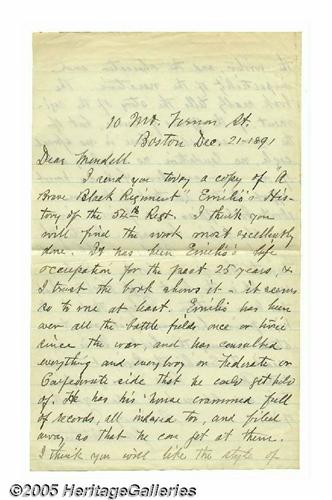 10 Mt. Vernon St.
Boston Dec. 21-1891
Dear Mendell
I send you today a copy of "A
Brave Black Regiment" Emilio's His-
tory of the 54th Regt. I think you
will find the work most excellently
done. It has been Emilio's life
occupation for the past 25 years, &
I trust the book shows it - it seems
so to me at least. Emilio has been
over all the battle fields once or twice
since the war, and has consulted
everything and everyboy on Federate or
Confederate side that he could get hold
of. He has his house crammed full
of records, all indexed too, and filed
away so that he can get at them.
I think you will like the style of
©2005 HeritageGalleries